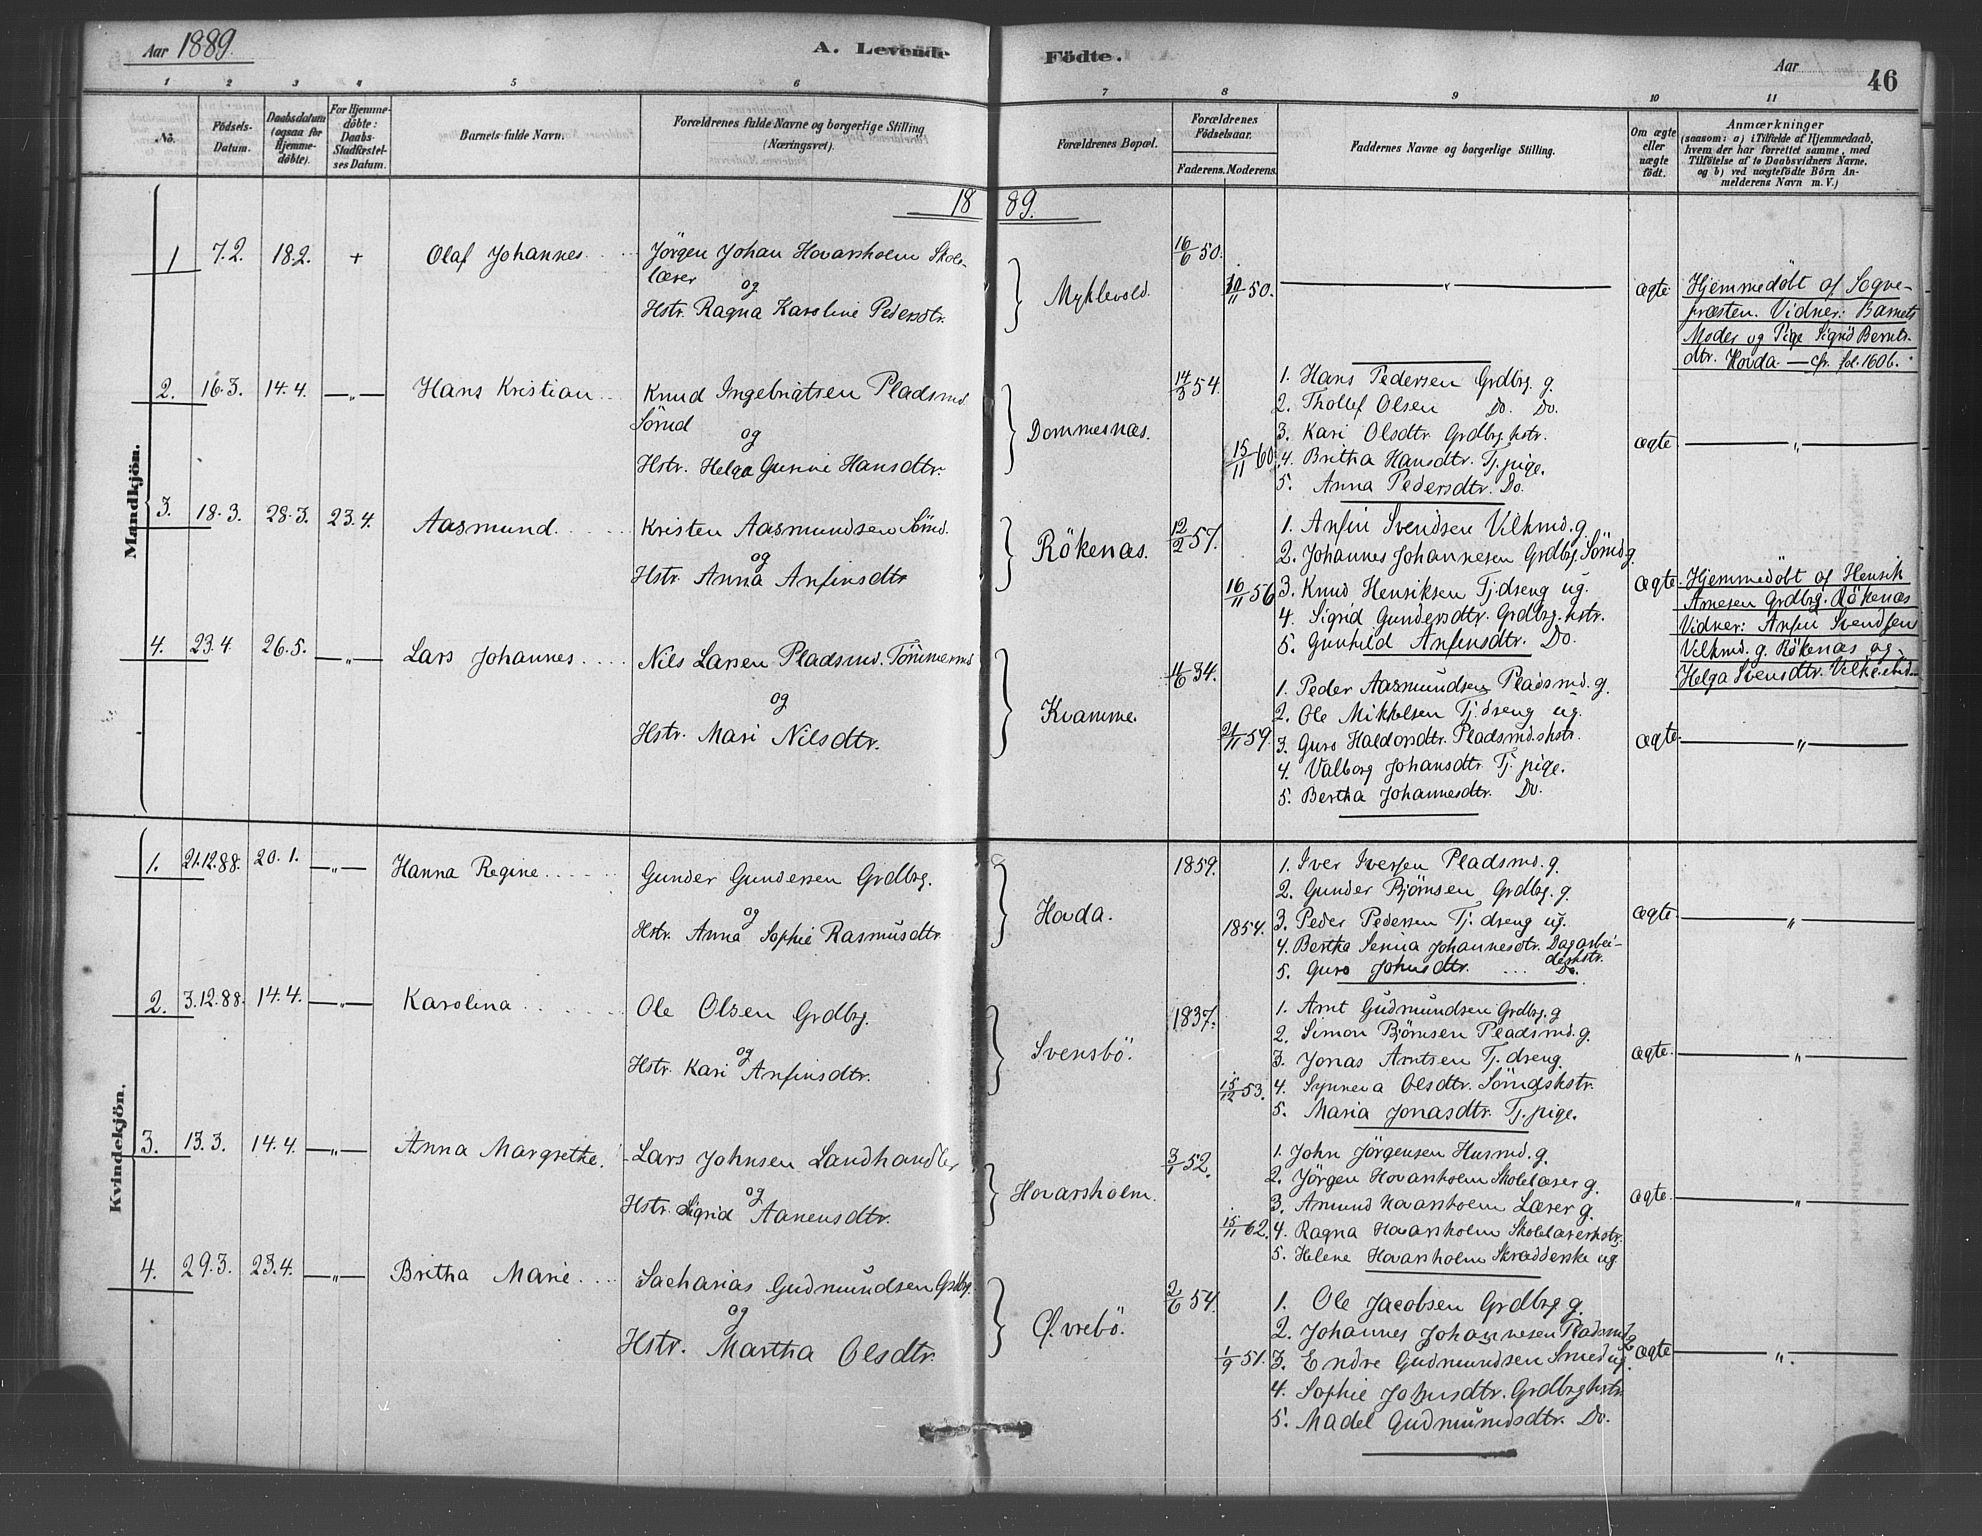 Aar 1889.
A. Levende Födte.
Aar
46
1 2 3 4 5 6 7 8 9 10 11
No.
Födsels-Datum.
Daabsdatum (ogsaa for Hjemmedöbte).
For Hjemmedöbte: Daabs-Stadfæstelses Datum.
Barnets fulde Navn.
Forældrenes fulde Navne og borgerlige Stilling (Næringsvei).
Forældrenes Bopæl.
Forældrenes Födselsaar.
Faderens. Moderens.
Faddernes Navne og borgerlige Stilling.
Om ægte eller uægte födt.
Anmærkninger
(saasom: a) i Tilfælde af Hjemmedaab,
hvem der har forrettet samme, med
Tilföielse af to Daabsvidners Navne,
og b) ved uægtefödte Börn An-
melderens Navn m. V.)
1889.
Mandkjön.
1 7.2. 18.2. + Olaf Johannes
Jörgen Johan Hovarsholm Skole-
lærer
og
Hstr. Ragna Karoline Pedersdtr.
Myklevold.
16/6 50.
50.
ægte
Hjemmedöbt af Sogne-
præsten. Vidner: Barnets
Moder og Pige Sigrid Bernts-
dtr. Hovda — cfr. fol. 160b.
2. 16.3. 14.4. —„— Hans Kristian
Knud Ingebrigtsen Pladsmd.
Sömd
og
Hstr. Helga Gurine Hansdtr.
Dommesnæs.
14/3 54.
15/11 60.
1. Hans Pedersen Grdbrg. g.
2. Thollef Olsen Do. Do.
3. Kari Olsdtr. Grdbrg.hstr.
4. Britha Hansdtr. Tj.pige.
5. Anna Pedersdtr. Do.
ægte —„—
3. 18.3. 28.3. 23.4. Aasmund.
Kristen Aasmundsen Sömd.
og
Hstr. Anna Anfinsdtr
Rökenæs.
12/2 57.
16/11 56
1. Anfin Svendsen Vilkmd. g.
2. Johannes Johannesen Grdbrg. Sömd g.
3. Knud Henriksen Tj.dreng ug.
4. Sigrid Gundersdtr. Grdbrg.hstr.
5. Gunhild Anfinsdtr. Do.
ægte.
Hjemmedöbt af Henrik
Arnesen Grdbrg. Rökenæs
Vidner: Anfin Svendsen
Velkmd. g. Rökenæs og
Helga Svensdtr.
4. 23.4. 26.5. —„— Lars Johannes
Nils Larsen Pladsmd. Tömmermd
og
Hstr. Mari Nilsdtr.
Kvamme.
4/6 34.
21/11 59.
1. Peder Aasmundsen Pladsmd. g.
2. Ole Mikkelsen Tj.dreng ug.
3. Guro Haldorsdtr. Pladsmd.shstr.
4. Valborg Johansdtr. Tj.pige.
5. Bertha Johannesdtr. Do.
ægte. —„—
Kvindekjön.
1. 21.12.88. 20.1. —„— Hanna Regine
Gunder Gundersen Grdbrg.
og
Hstr. Anna Sophie Rasmusdtr.
Hovda.
1859.
1854.
1. Iver Iversen Pladsmd. g.
2. Gunder Björnsen Grdbrg. g.
3. Peder Pedersen Tj.dreng ug.
4. Bertha Serina Johannesdtr. Dagarbei-
dershstr.
5. Guro Johnsdtr. Do.
ægte. —„—
2. 3.12.88. 14.4. —„— Karolina
Ole Olsen Grdbrg.
og
Hstr. Kari Anfinsdtr.
Svensbö.
1837.
15/12 53.
1. Arnt Gudmundsen Grdbrg. g
2. Simon Björnsen Pladsmd. g.
3. Jonas Arntsen Tj.dreng.
4. Synneva Olsdtr. Sömdshstr.
5. Maria Jonasdtr. Tj.pige.
ægte. —„—
3. 13.3. 14.4. —„— Anna Margrethe.
Lars Johnsen Landhandler
og
Hstr. Sigrid Aanensdtr.
Hovarsholm.
3/1 52.
15/11 62.
1. John Jörgensen Husmd. g.
2. Jörgen Hovarsholm Skolelærer g.
3. Amund Hovarsholm Lærer g.
4. Ragna Hovarsholm Skolelærerhstr.
5. Helene Hovarsholm Skrædderske ug.
ægte. —„—
4. 29.3. 23.4. —„— Britha Marie
Sacharias Gudmundsen Grdbrg.
og
Hstr. Martha Olsdtr.
Øvrebö.
2/6 54.
1/9 51.
1. Ole Jacobsen Grdbrg g.
2. Johannes Johannesen Pladsmd. g.
3. Endre Gudmundsen Smed ug.
4. Sophie Johnsdtr. Grdbrghstr
5. Madel Gudmundsdtr. Do.
ægte —„—